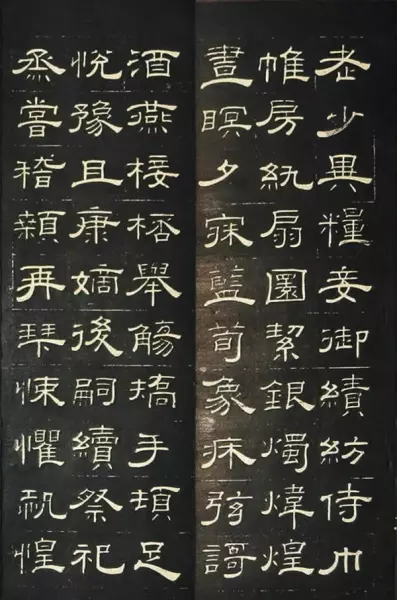 老少異糧妾御績紡侍巾
帷房紈扇圓絜銀燭煒煌
晝瞑夕寐藍筍象床弦謌
酒燕接桮舉觴撟手頓足
悅豫且康嫡後嗣續祭祀
烝嘗稽顙再拜悚懼恐惶